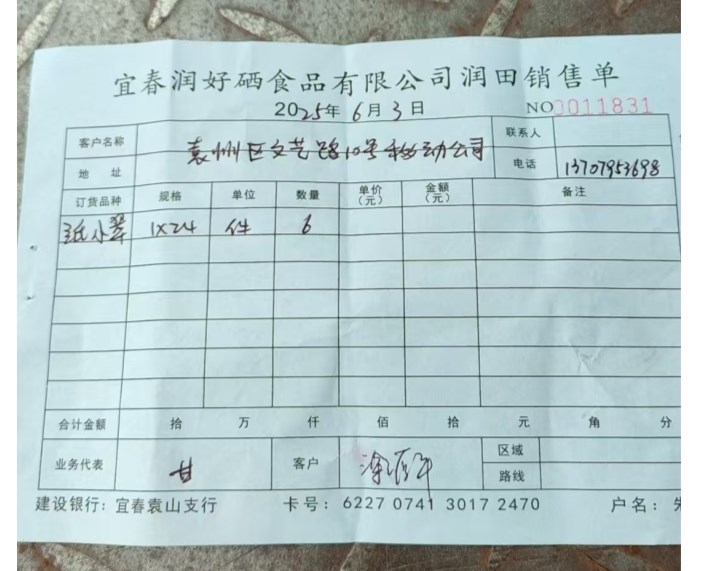 宜春润好硒食品有限公司润田销售单
2025年6月3日 NO0011831
客户名称 袁州区文艺路10号移动公司 联系人
地址 电话 13707953698
订货品种 规格 单位 数量 单价(元) 金额(元) 备注
纸小翠 1X24 件 6
合计金额 拾 万 仟 佰 拾 元 角 分
业务代表 甘 客户 区域
路线
建设银行:宜春袁山支行 卡号:6227 0741 3017 2470 户名: